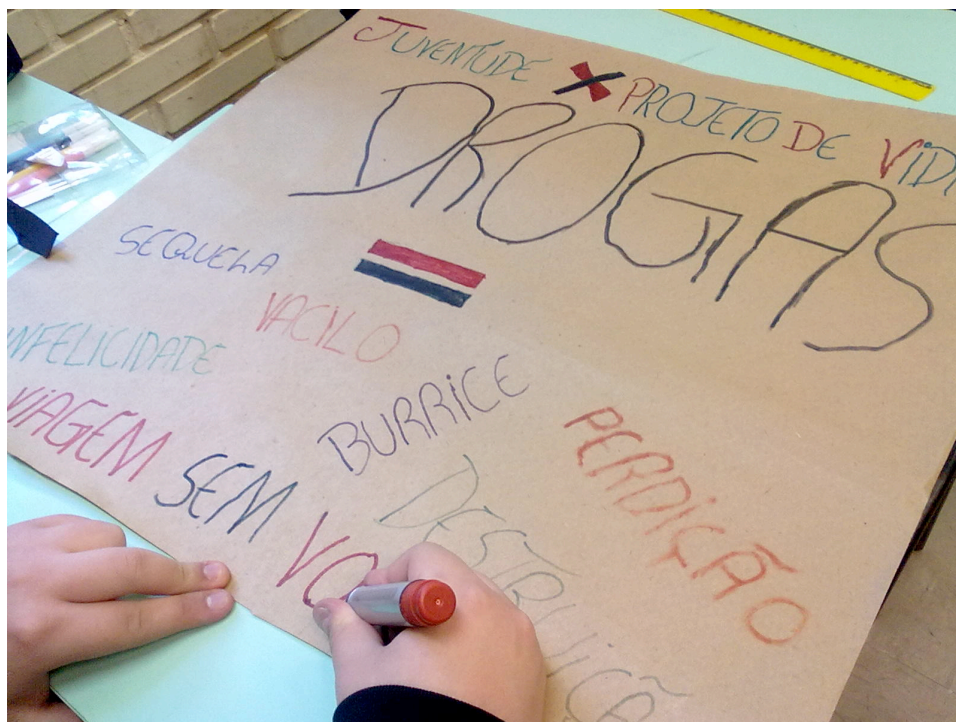 JUVENTUDE X PROJETO DE VIDA
DROGAS
=
SEQUELA
VACILO
INFELICIDADE
BURRICE
PERDIÇÃO
VIAGEM SEM VO
DESTRUIÇÃ